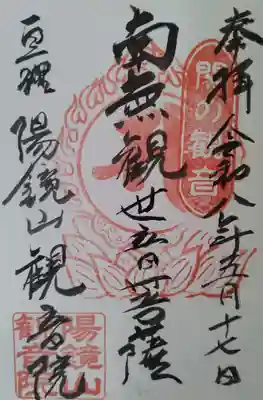 奉拝 令和八年五月十七日
の観音
南無観世音菩薩
亘理 陽鏡山 観音院
陽鏡山
観音院